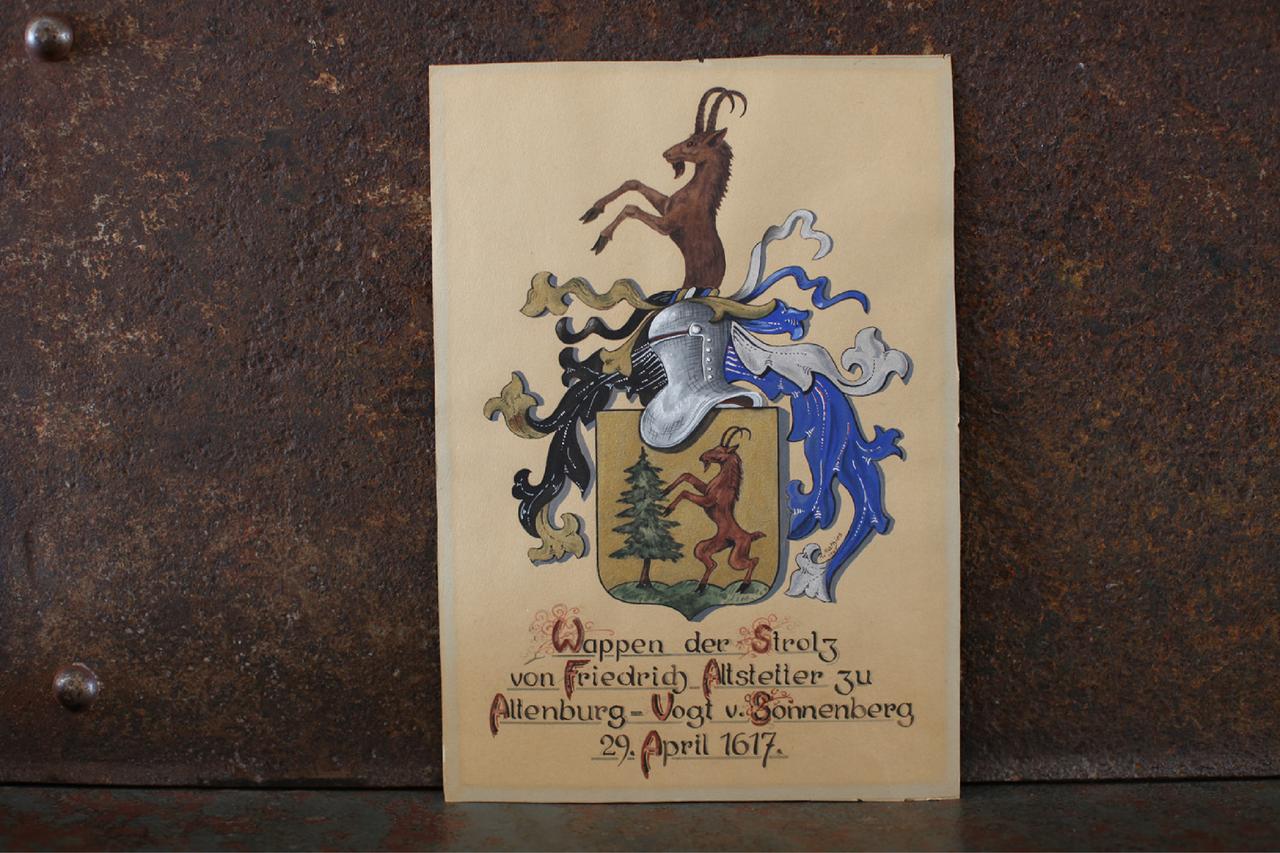 Wappen der Strolz
von Friedrich Altstetter zu
Altenburg = Vogt v. Sonnenberg
29. April 1617.